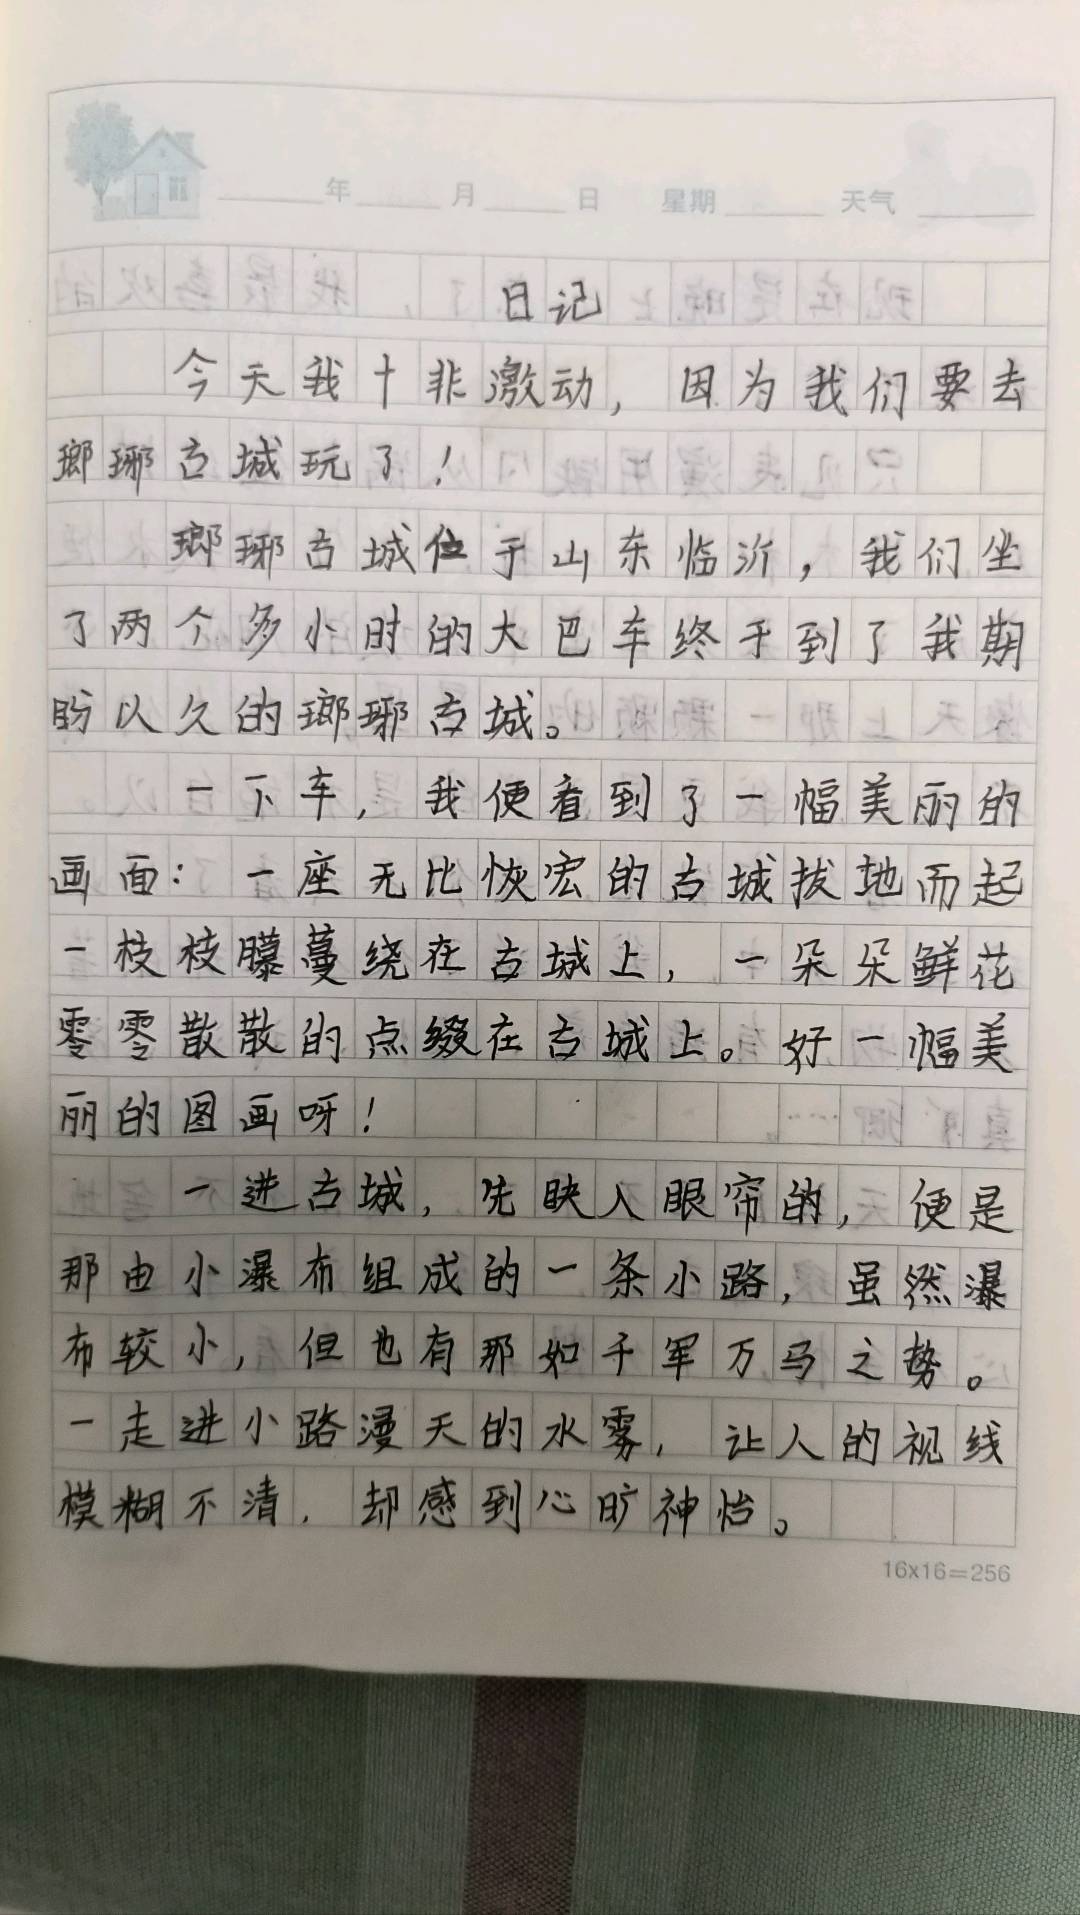 年 月 日 星期 天气
日记
今天我十非激动，因为我们要去
瑯琊古城玩了！
瑯琊古城位于山东临沂，我们坐
了两个多小时的大巴车终于到了我期
盼以久的瑯琊古城。
一下车，我便看到了一幅美丽的
画面：一座无比恢宏的古城拔地而起
一枝枝朦蔓绕在古城上，一朵朵鲜花
零零散散的点缀在古城上。好一幅美
丽的图画呀！
一进古城，先映入眼帘的，便是
那由小瀑布组成的一条小路，虽然瀑
布较小，但也有那如千军万马之势。
一走进小路漫天的水雾，让人的视线
模糊不清，却感到心旷神怡。
16x16=256